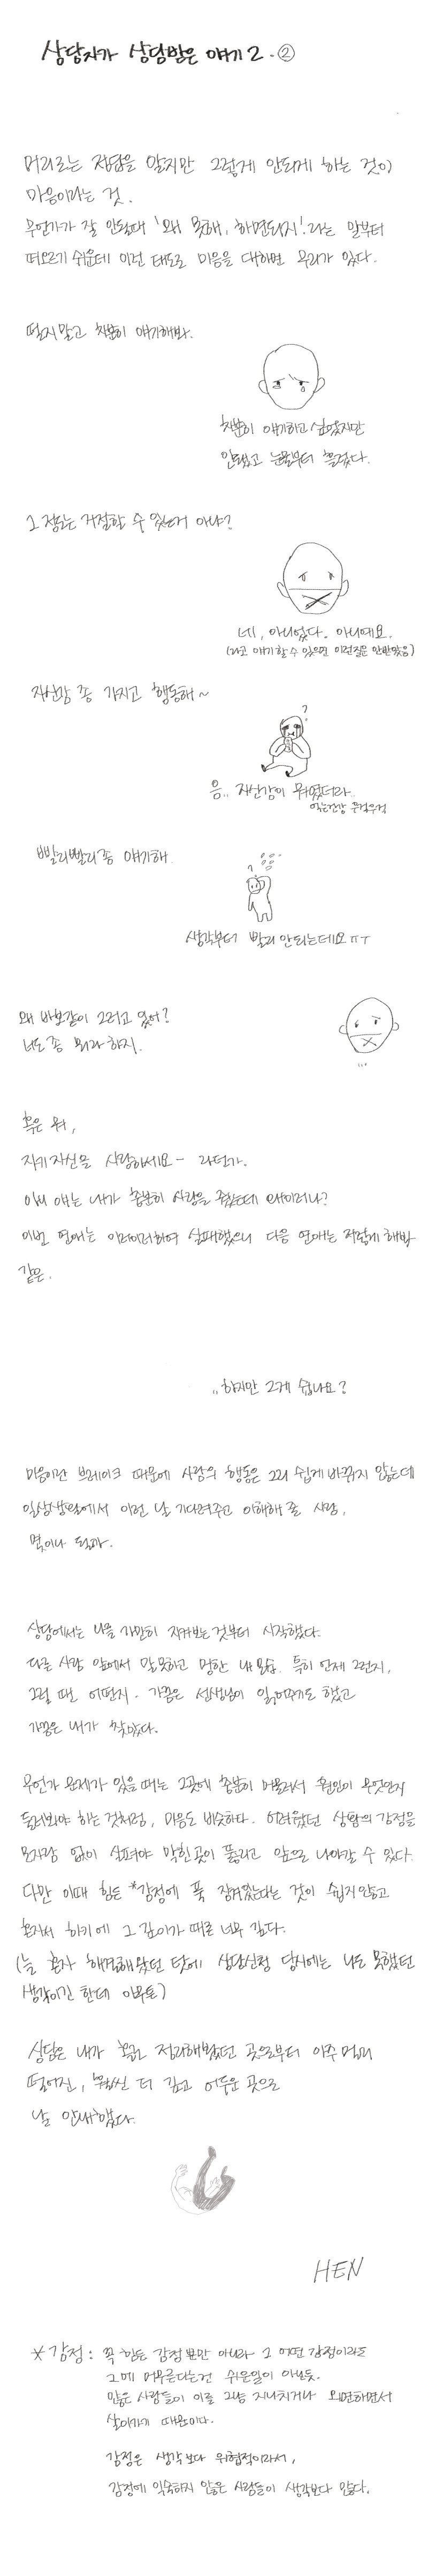 상담자가 상담받은 얘기 2 - ②
머리로는 정답을 알지만 그렇게 안되게 하는 것이
마음이라는 것.
무언가가 잘 안될때 '왜 못해, 하면되지'라는 말부터
떠오르기 쉬운데 이런 태도로 마음을 대하면 무리가 있다.
떨지말고 차분히 얘기해봐.
차분히 얘기하고 싶었지만
안됐고 눈물부터 흘렀다.
그 정도는 거절할 수 있는거 아냐?
네, 아니었다. 아니에요.
(라고 얘기할 수 있으면 이런질문 안받았음)
자신감 좀 가지고 행동해~
?
음.. 자신감이 뭐였더라..
먹는건강 우걱우걱
빨리빨리 좀 얘기해
?
생각부터 빨리 안되는데요ㅠㅜ
왜 바보같이 그러고 있어?
너도 좀 뭐라 하지.
...
혹은 뭐,
자기 자신을 사랑하세요- 라던가.
아니 얘는 내가 충분히 사랑을 줬는데 왜이러나?
이번 연애는 이러이러하여 실패했으니 다음 연애는 저렇게 해봐
같은.
..하지만 그게 쉽나요?
마음이란 브레이크 때문에 사람의 행동은 그리 쉽게 바뀌지 않는데
일상생활에서 이런 날 기다려주고 이해해 줄 사람,
몇이나 될까.
상담에서는 나를 가만히 지켜보는 것부터 시작했다.
다른 사람 앞에서 말 못하고 멍한 내 모습. 특히 언제 그런지,
그럴 때 어떤지. 가끔은 선생님이 읽어주기도 했고
가끔은 내가 찾았다.
무언가 문제가 있을 때는 그곳에 충분히 머물러서 원인이 무엇인지
들여봐야 하는 것처럼, 마음도 비슷하다. 어려웠던 상황의 감정을
모자람 없이 살펴야 막힌 곳이 풀리고 앞으로 나아갈 수 있다.
다만 이때 힘든 *감정에 푹 잠겨있는다는 것이 쉽지 않고
혼자서 하기에 그 깊이가 때로 너무 깊다.
(늘 혼자 해결해왔던 탓에 상담신청 당시에는 나도 못했던
생각이긴 한데 아무튼)
상담은 내가 혼자 정리해봤던 곳으로부터 아주 멀리
떨어진, 훨씬 더 깊고 어두운 곳으로
날 안내했다.
HEN
*감정 : 꼭 힘든 감정 뿐만 아니라 그 어떤 감정이라도
그에 머무른다는건 쉬운일이 아닌듯.
많은 사람들이 이를 그냥 지나치거나 외면하면서
살아가기 때문이다.
감정은 생각보다 위협적이라서,
감정에 익숙하지 않은 사람들이 생각보다 많다.